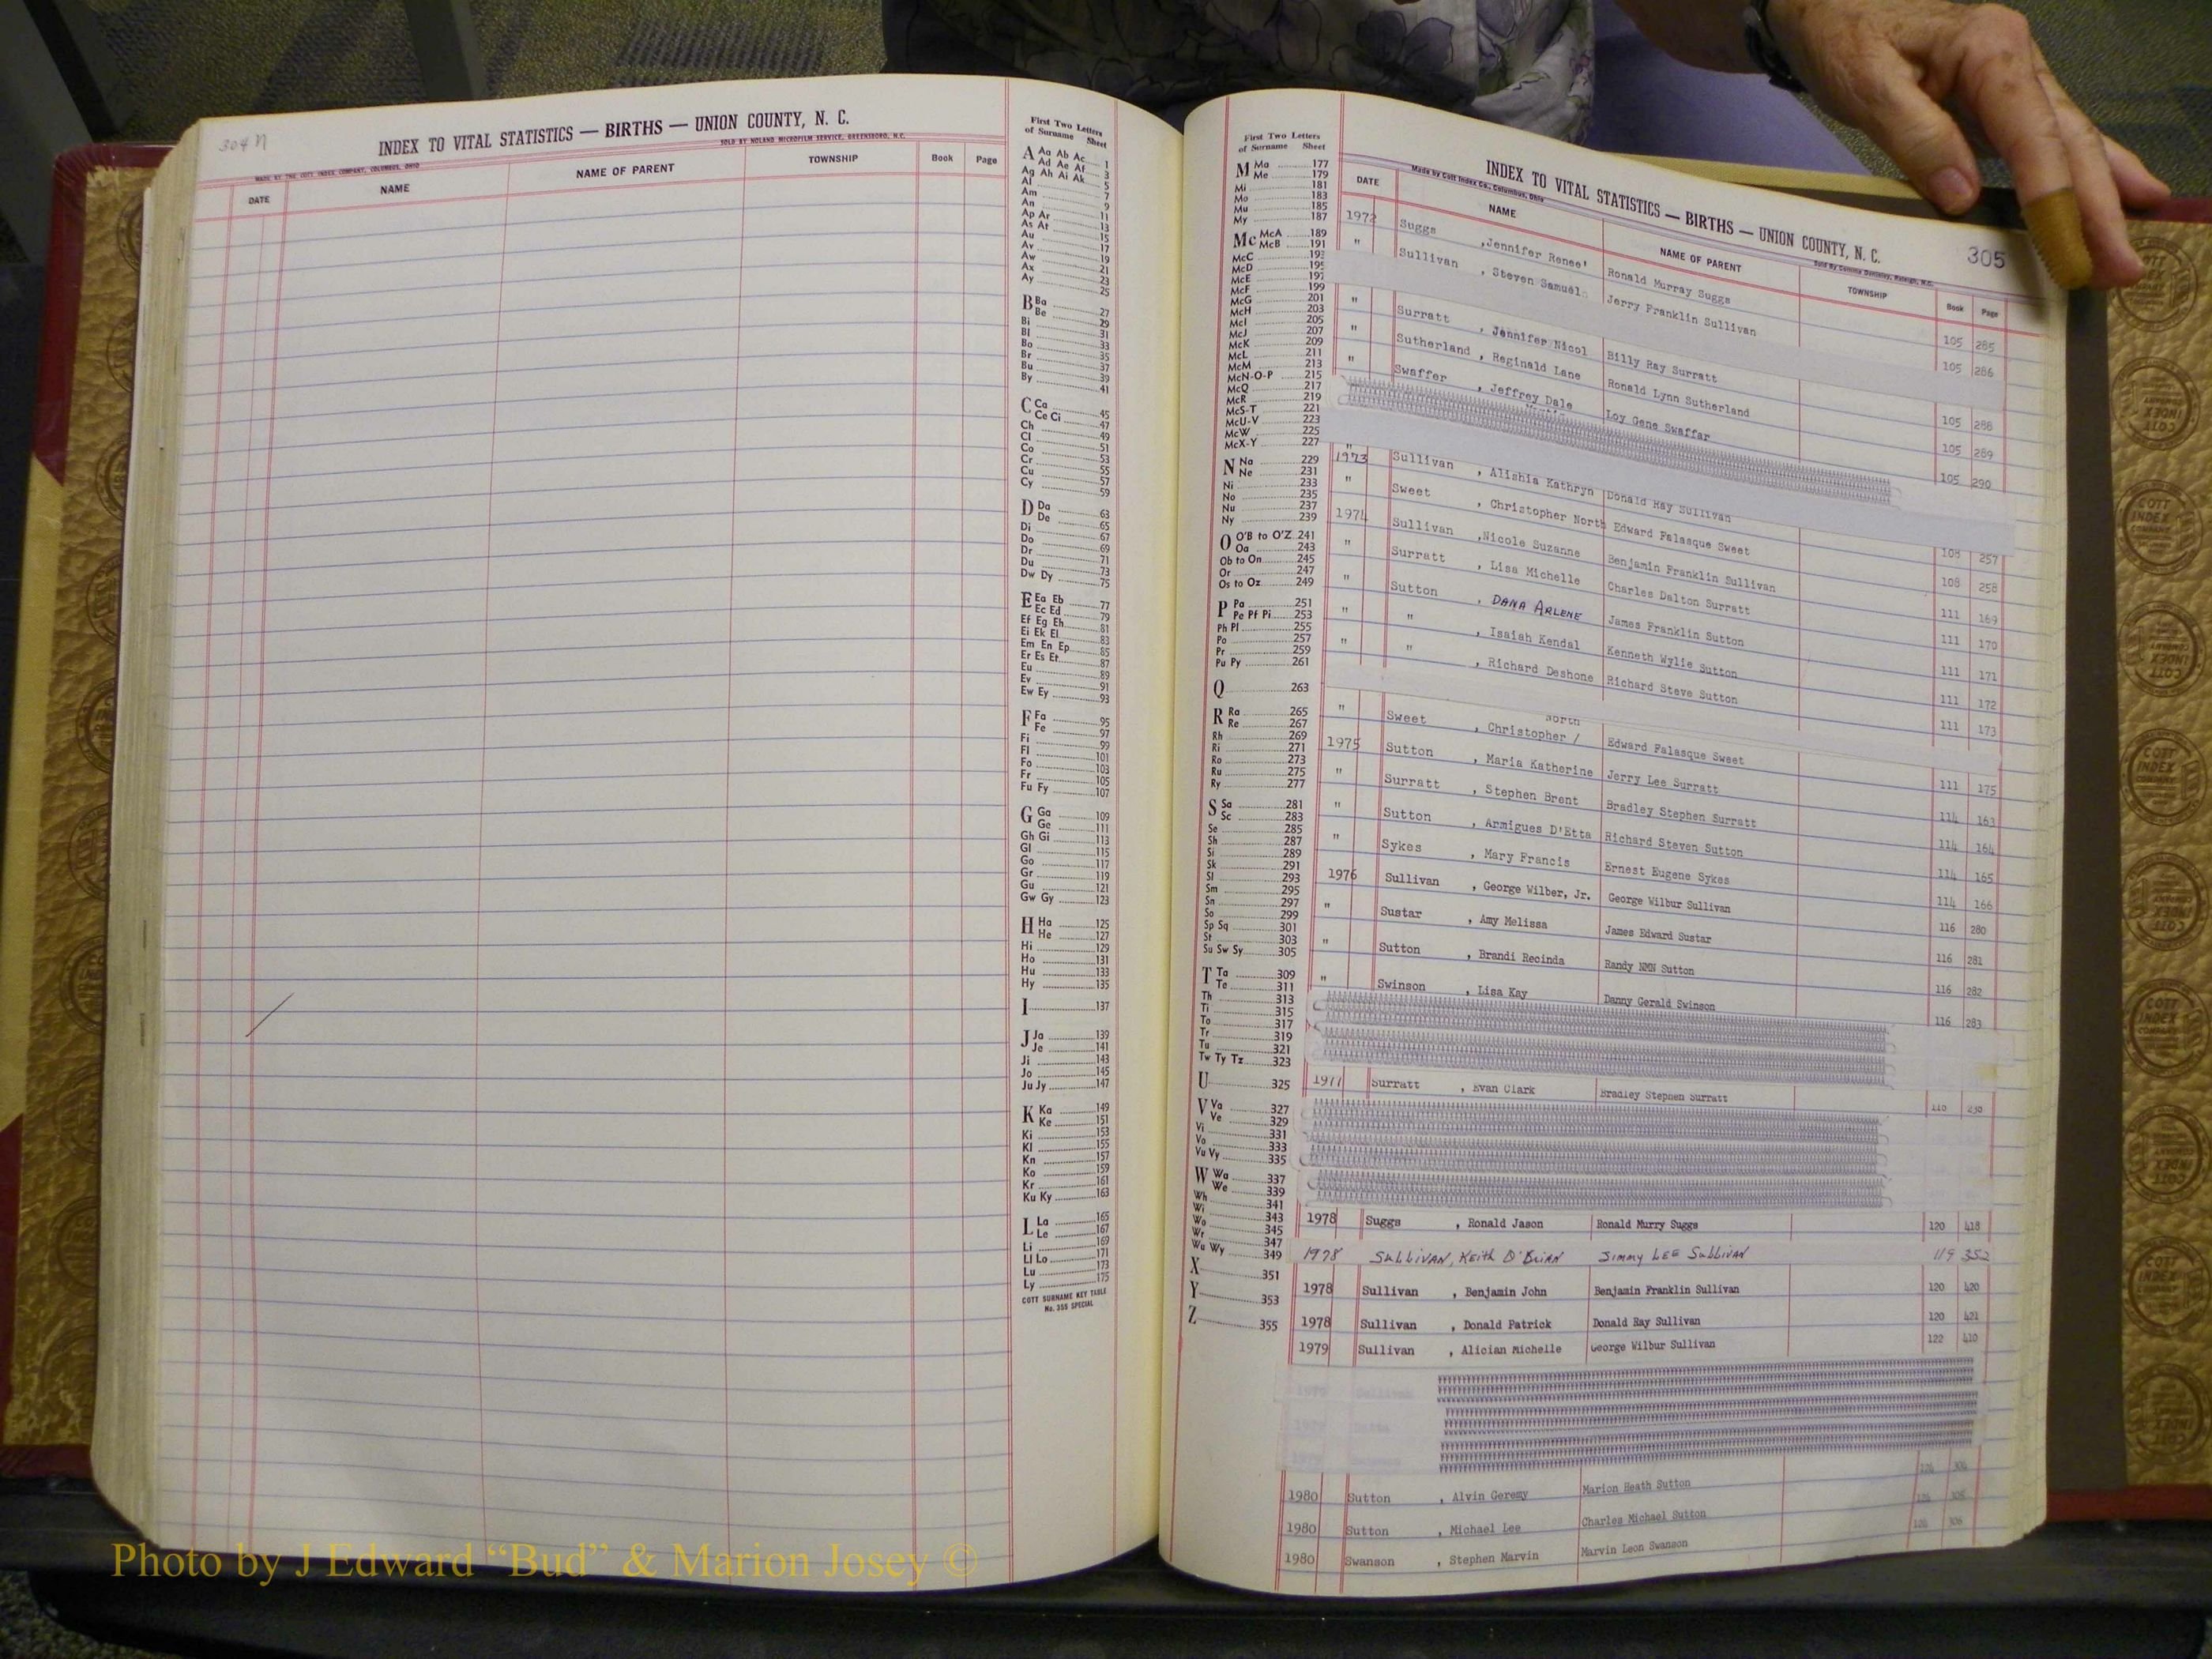 304 N
INDEX TO VITAL STATISTICS — BIRTHS — UNION COUNTY, N. C.
MADE BY THE COTT INDEX COMPANY, COLUMBUS, OHIO
SOLD BY NOLAND MICROFILM SERVICE, GREENSBORO, N.C.
DATE NAME NAME OF PARENT TOWNSHIP Book Page
First Two Letters
of Surname Sheet
A Aa Ab Ac 1
Ad Ae Af 3
Ag Ah Ai Ak 5
Al 7
Am 9
An 11
Ap Ar 13
As At 15
Au 17
Av 19
Aw 21
Ax 23
Ay 25
B Ba 27
Be 29
Bi 31
Bl 33
Bo 35
Br 37
Bu 39
By 41
C Ca 45
Ce Ci 47
Ch 49
Cl 51
Co 53
Cr 55
Cu 57
Cy 59
D Da 63
De 65
Di 67
Do 69
Dr 71
Du 73
Dw Dy 75
E Ea Eb 77
Ec Ed 79
Ef Eg Eh 81
Ei Ek El 83
Em En Ep 85
Er Es Et 87
Eu 89
Ev 91
Ew Ey 93
F Fa 95
Fe 97
Fi 99
Fl 101
Fo 103
Fr 105
Fu Fy 107
G Ga 109
Ge 111
Gh Gi 113
Gl 115
Go 117
Gr 119
Gu 121
Gw Gy 123
H Ha 125
He 127
Hi 129
Ho 131
Hu 133
Hy 135
I 137
J Ja 139
Je 141
Ji 143
Jo 145
Ju Jy 147
K Ka 149
Ke 151
Ki 153
Kl 155
Kn 157
Ko 159
Kr 161
Ku Ky 163
L La 165
Le 167
Li 169
Ll Lo 171
Lu 173
Ly 175
COTT SURNAME KEY TABLE
No. 355 SPECIAL
First Two Letters
of Surname Sheet
M Ma 177
Me 179
Mi 181
Mo 183
Mu 185
My 187
Mc McA 189
McB 191
McC
McD
McE 197
McF 199
McG 201
McH 203
McI 205
McJ 207
McK 209
McL 211
McM 213
McN-O-P 215
McQ 217
McR 219
McS-T 221
McU-V 223
McW 225
McX-Y 227
N Na 229
Ne 231
Ni 233
No 235
Nu 237
Ny 239
O O'B to O'Z 241
Oa 243
Ob to On 245
Or 247
Os to Oz 249
P Pa 251
Pe Pf Pi 253
Ph Pl 255
Po 257
Pr 259
Pu Py 261
Q 263
R Ra 265
Re 267
Rh 269
Ri 271
Ro 273
Ru 275
Ry 277
S Sa 281
Sc 283
Se 285
Sh 287
Si 289
Sk 291
Sl 293
Sm 295
Sn 297
So 299
Sp Sq 301
St 303
Su Sw Sy 305
T Ta 309
Te 311
Th 313
Ti 315
To 317
Tr 319
Tu 321
Tw Ty Tz 323
U 325
V Va 327
Ve 329
Vi 331
Vo 333
Vu Vy 335
W Wa 337
We 339
Wh 341
Wi 343
Wo 345
Wr 347
Wu Wy 349
X 351
Y 353
Z 355
305
INDEX TO VITAL STATISTICS — BIRTHS — UNION COUNTY, N. C.
Made by Cott Index Co., Columbus, Ohio
DATE NAME NAME OF PARENT TOWNSHIP Book Page
1972 Suggs , Jennifer Renee' Ronald Murray Suggs 105 285
" Sullivan , Steven Samuel Jerry Franklin Sullivan 105 286
" Surratt , Jennifer Nicol Billy Ray Surratt 105 288
" Sutherland , Reginald Lane Ronald Lynn Sutherland 105 289
" Swaffer , Jeffrey Dale Loy Gene Swaffar 105 290
1973 Sullivan , Alishia Kathryn Donald Ray Sullivan 108 257
" Sweet , Christopher North Edward Falasque Sweet 108 258
1974 Sullivan , Nicole Suzanne Benjamin Franklin Sullivan 111 169
" Surratt , Lisa Michelle Charles Dalton Surratt 111 170
" Sutton , DANA ARLENE James Franklin Sutton 111 171
" " , Isaiah Kendal Kenneth Wylie Sutton 111 172
" " , Richard Deshone Richard Steve Sutton 111 173
North
" Sweet , Christopher / Edward Falasque Sweet 111 175
1975 Sutton , Maria Katherine Jerry Lee Surratt 114 163
" Surratt , Stephen Brent Bradley Stephen Surratt 114 164
" Sutton , Armigues D'Etta Richard Steven Sutton 114 165
" Sykes , Mary Francis Ernest Eugene Sykes 114 166
1976 Sullivan , George Wilber, Jr. George Wilbur Sullivan 116 280
" Sustar , Amy Melissa James Edward Sustar 116 281
" Sutton , Brandi Recinda Randy NMN Sutton 116 282
" Swinson , Lisa Kay Danny Gerald Swinson 116 283
1977 Surratt , Evan Clark Bradley Stephen Surratt
1978 Suggs , Ronald Jason Ronald Murry Suggs 120 418
1978 SULLIVAN, KEITH O'BRIAN JIMMY LEE SULLIVAN 119 352
1978 Sullivan , Benjamin John Benjamin Franklin Sullivan 120 420
1978 Sullivan , Donald Patrick Donald Ray Sullivan 120 421
1979 Sullivan , Alician Michelle George Wilbur Sullivan 122 410
1980 Sutton , Alvin Geremy Marion Heath Sutton
1980 Sutton , Michael Lee Charles Michael Sutton
1980 Swanson , Stephen Marvin Marvin Leon Swanson
Photo by J Edward “Bud” & Marion Josey ©